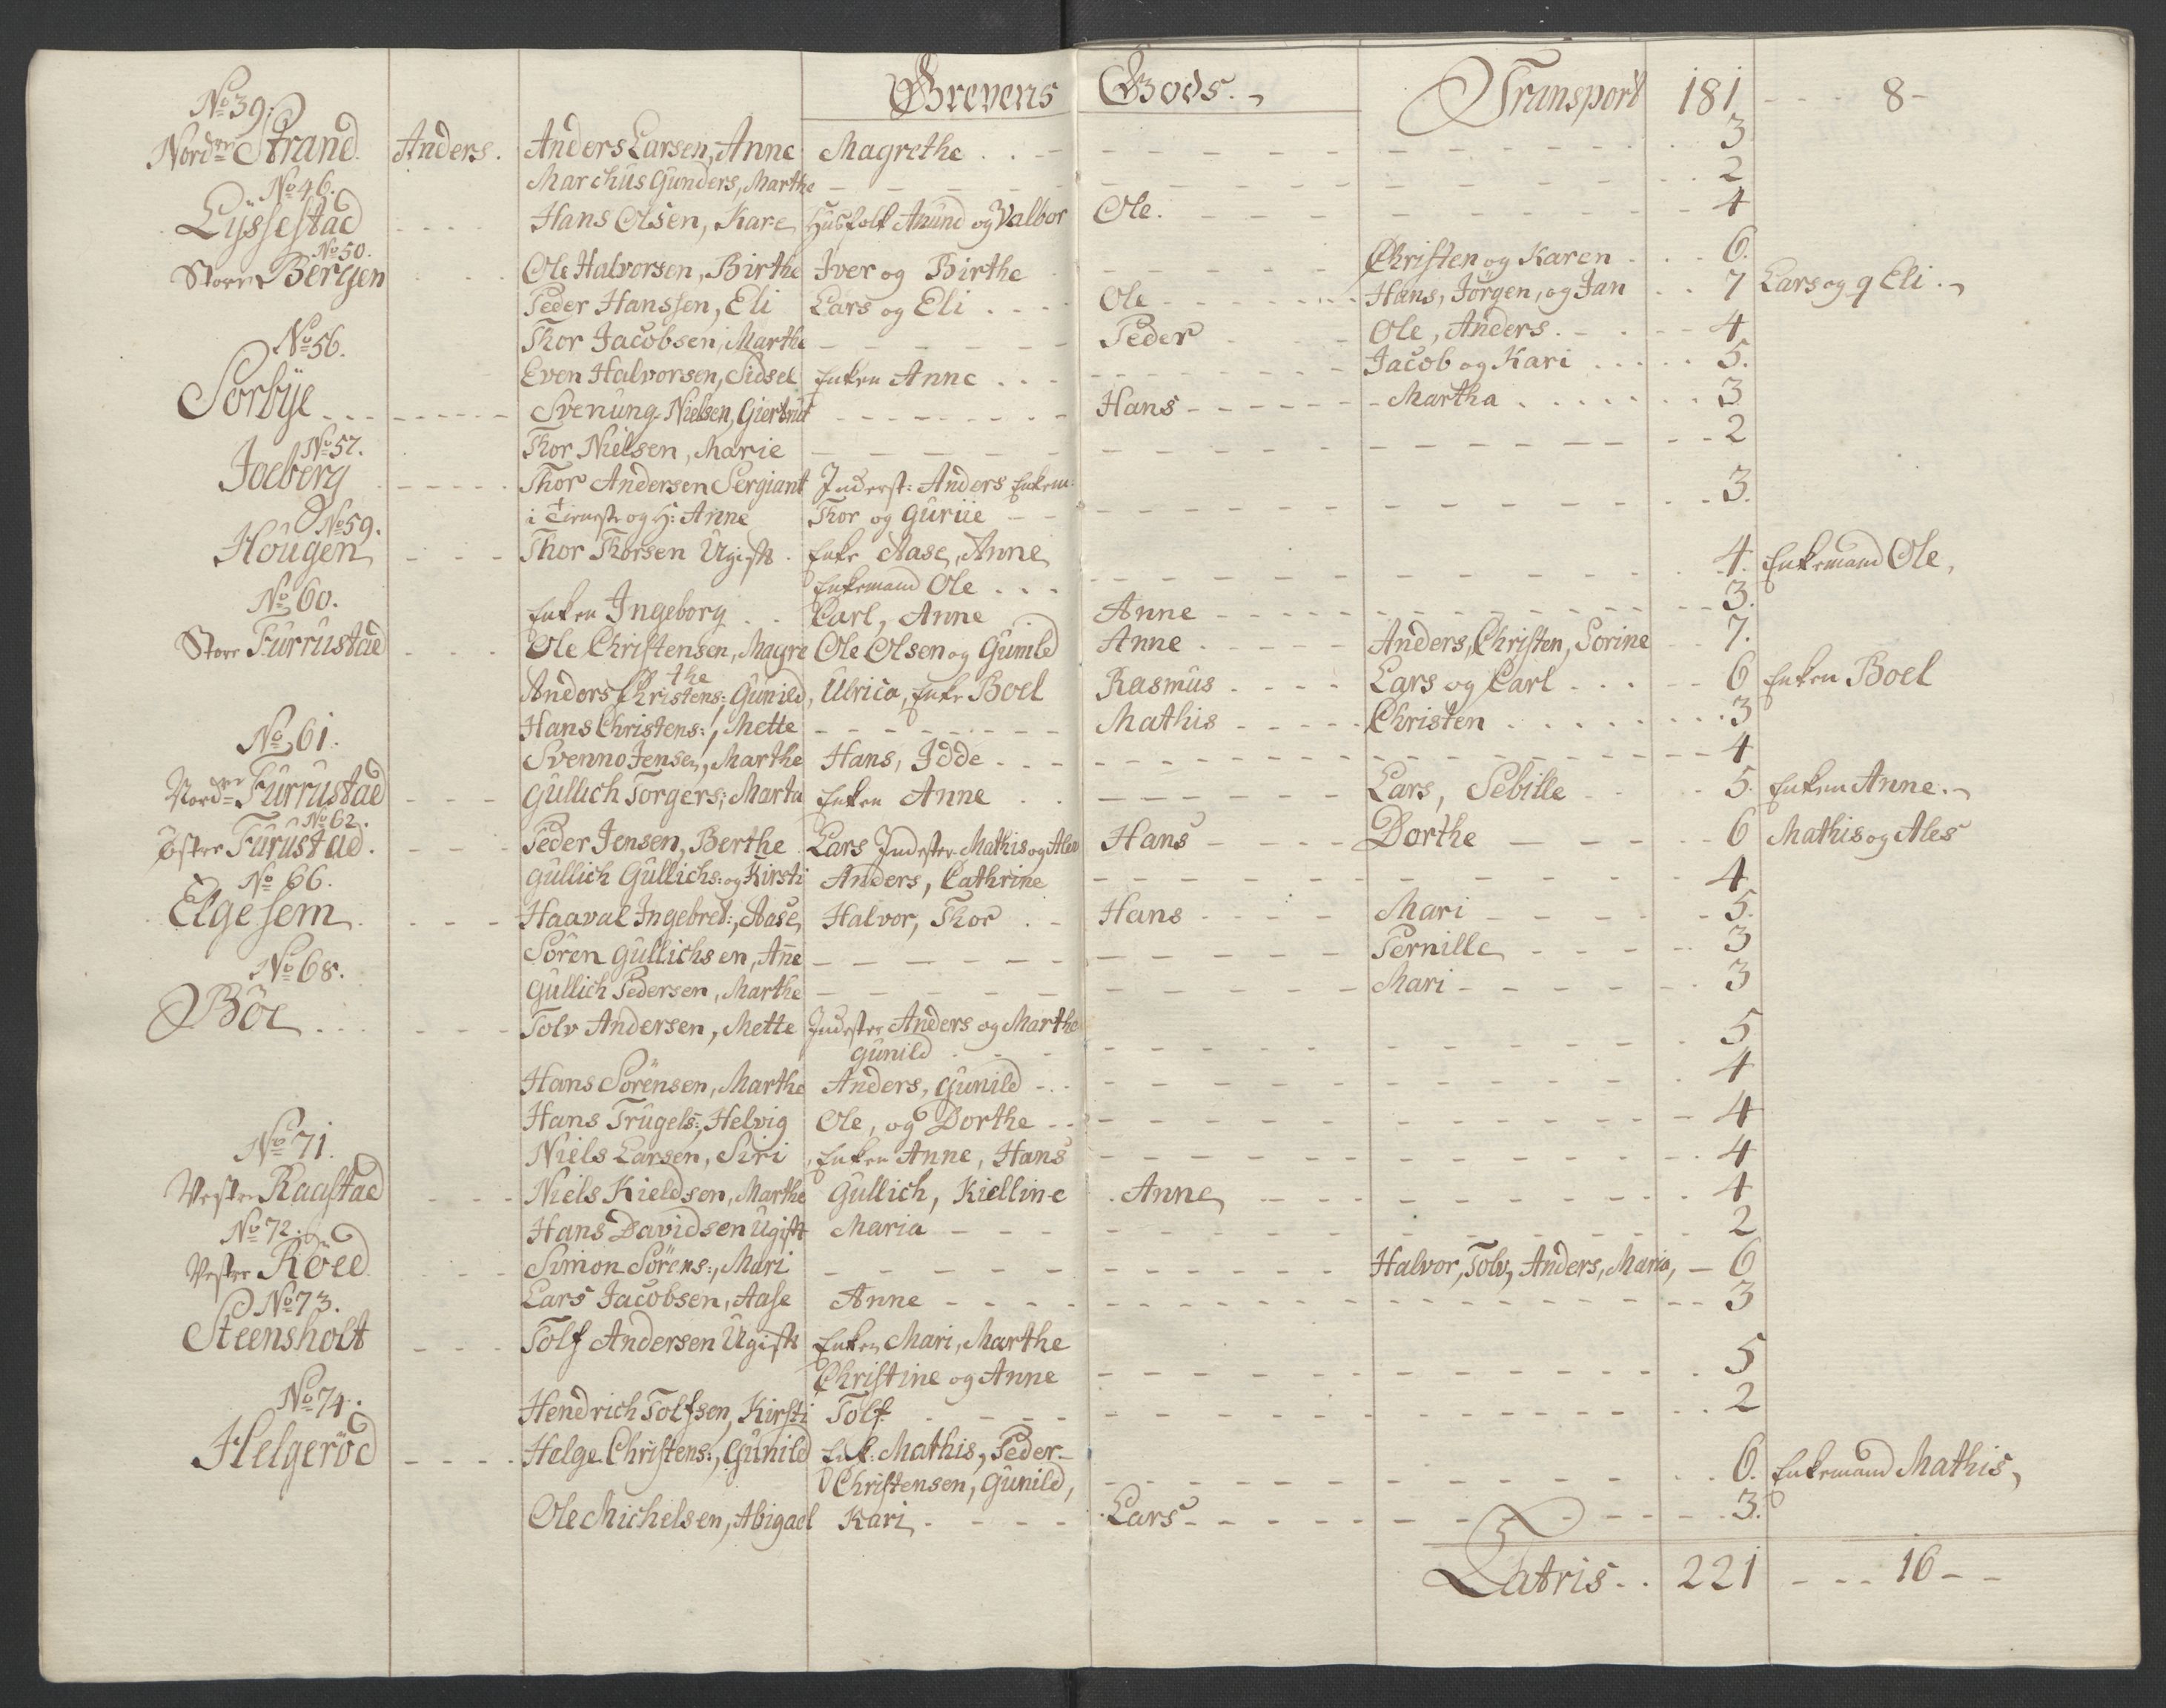 Grevens Gods. Transport 181 - - - 8 -
No 39:
Norder Strand. Anders. Anders Larsen, Anne Magrethe . . - - - 3
Marchus Gunders, Marthe - - - 2
No 46.
Lÿssestad - - - Hans Olsen, Kare Husfolk Anund og Valbor Ole. - - - 4
No 50.
Store Bergen - - - Ole Halvorsen, Birthe Iver og Birthe - - - Christen og Karen - - - 6.
Peder Hanssen, Eli Lars og Eli . . . Ole - - - Hans, Jörgen, og Jan . . 7 Lars og q Eli . -
No 56.
Thor Jacobsen, Marthe - - - Peder - - - Ole, Anders. - - - 4
Even Halvorsen, Sidsel Enken Anne . . . - - - Jacob og Kari . . . . . 5.
Sorbÿe - - - Svenung Nielsen, Giertrut - - - Hans - - - Martha . . . . . . 3
No 57.
Thor Nielsen, Marie - - - 2
Joeberg - - - Thor Andersen Sergiant Inderst: Anders Enkem:
i Tieneste og H: Anne Thor og Guriie - - - 3.
No 59.
Hougen - - - Thor Thorsen Ugift. Enke Aase, Anne
Enkemand Ole . . . - - - 4. Enkemand Ole,
No 60.
Enken Ingeborg . . Carl, Anne Anne - - - 3.
Store Furrustad - - - Ole Christensen, Magre Ole Olsen og Gunild Anne - - - Anders, Christen, Sorine - - 7.
the
Anders Christens:, Gunild, Ulrica, Enke Boel Rasmus - - - Lars og Carl . . . - - 6 Enken Boel
Hans Christens:, Mette - - - Mathis - - - Christen . . . . . 3
No 61.
Svenno Jensen, Marthe Hans, Idde . . . - - - 4
Norder Furrustad - - - Gullich Torgers; Marta Enken Anne . . - - - Lars, Sebille - - - 5. Enken Anne. -
No 62.
Öster Furustad. - - - Peder Jensen, Berthe Lars Indester Mathis og Ales Hans - - - Dorthe - - - 6 Mathis og Ales
No 66.
Gullich Gullichs: og Kirsti Anders, Cathrine - - - 4
Elgesem - - - Haaval Ingebret:, Aase, Halvor, Thor . - Hans - - - Mari - - - 5.
Sören Gullichsen, Ane - - - Pernille - - - 3
No 68.
Gullich Pedersen, Marthe - - - Mari - - - 3
Böe . . . - - - Tolv Andersen, Mette Indester Anders og Marthe
Gunild - - - 5
Hans Sörensen, Marthe Anders, Gunild - - - 4
Hans Trugels:, Helvig Ole, og Dorthe - - - 4
No 71.
Niels Larsen, Siri, Enken Anne, Hans - - - 4
Vester Raastad - - - Niels Kieldsen, Marthe Gullich, Kielline . Anne - - - 4
No 72.
Hans Davidsen Ugift Maria - - - 2
Vester Röed - - - Simon Sörens:, Mari - - - Halvor, Tolv, Anders, Maria, - 6
No 73.
Lars Jacobsen, Aase Anne - - - 3
Steensholt - - - Tolf Andersen Ugift Enken Mari, Marthe
Christine og Anne - - - 5
No 74.
Hendrich Tolfsen, Kirsti Tolf - - - 2
Helgeröd - - - Helge Christens:, Gunild Enk: Mathis, Peder -
Christensen, Gunild, - - - 6. Enkemand Mathis,
Ole Michelsen, Abigael Kari - - - Lars - - - 3.
Latris . . 221 - - - 16 - -